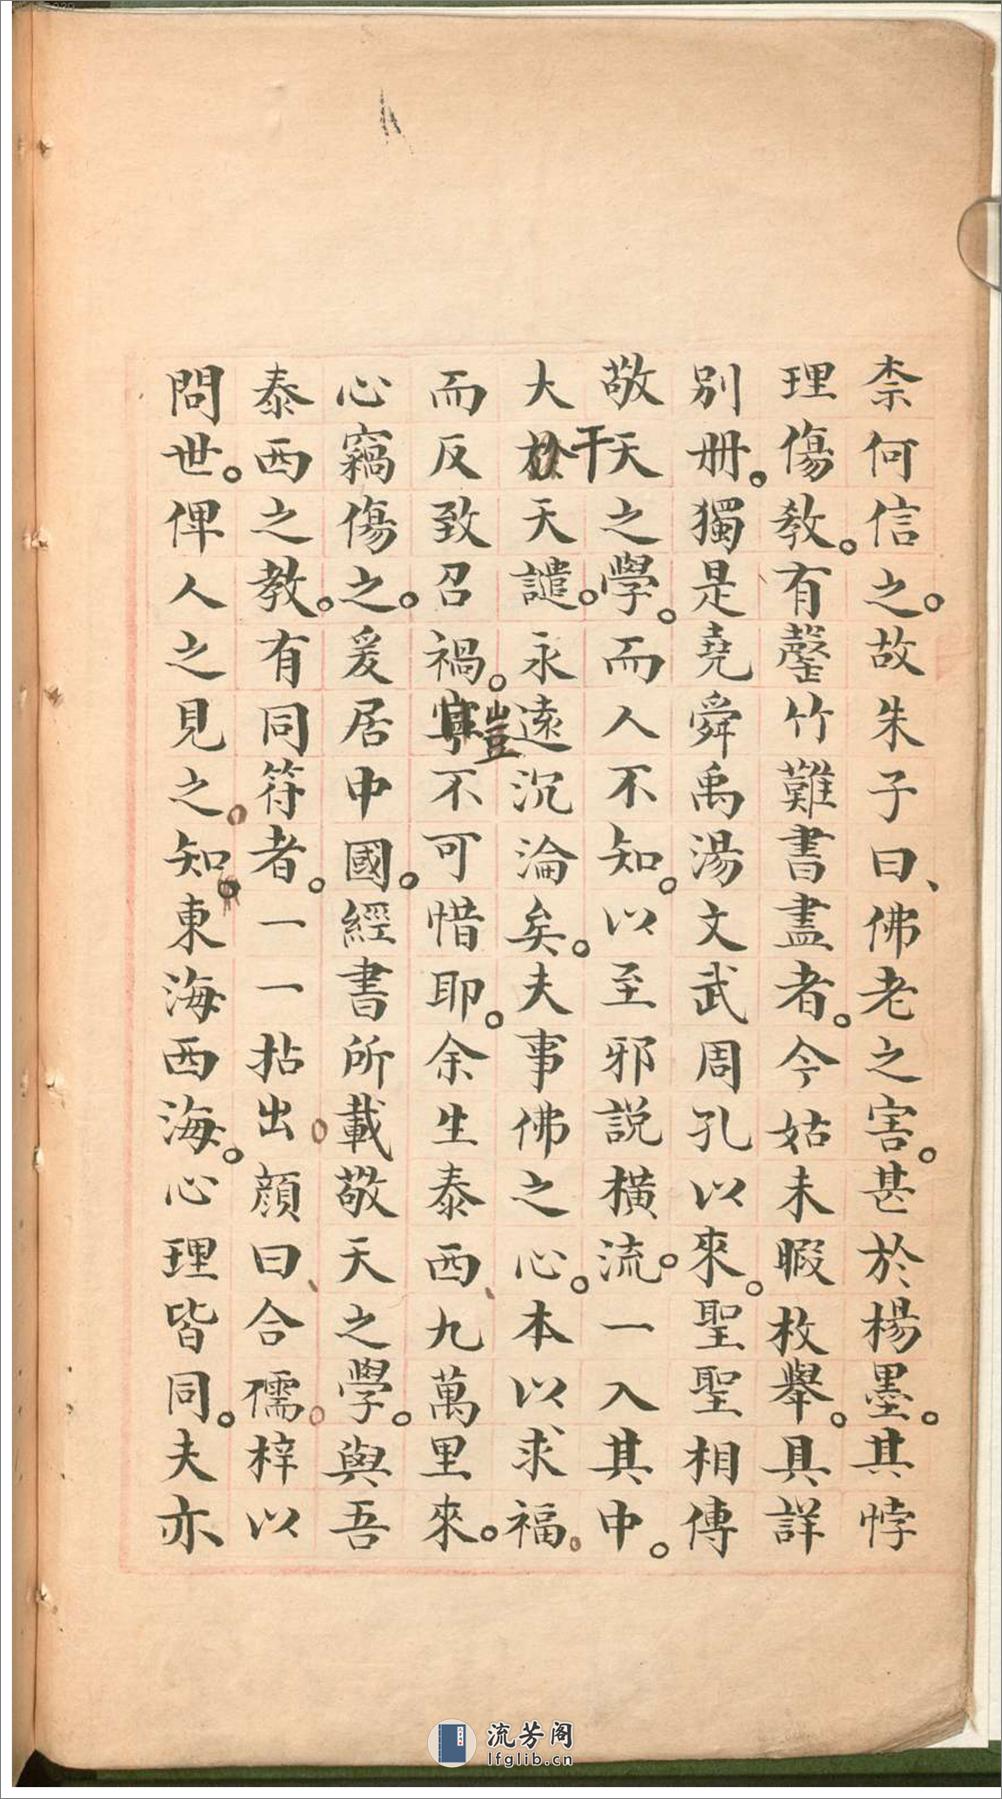 柰何信之。故朱子曰、佛老之害。甚於楊墨。其悖
理傷教。有罄竹難書盡者。今姑未暇枚舉。具詳
別册。獨是堯舜禹湯文武周孔以來。聖聖相傳
敬天之學。而人不知。以至邪說橫流。一入其中。
大干天譴。永遠沉淪矣。夫事佛之心。本以求福。
而反致召禍。豈不可惜耶。余生泰西、九萬里來。
心竊傷之。爰居中國。經書所載敬天之學。與吾
泰西之教。有同符者。一一拈出。顏曰、合儒。梓以
問世。俾人之見之。知東海西海。心理皆同。夫亦
流芳阁
lfglib.cn